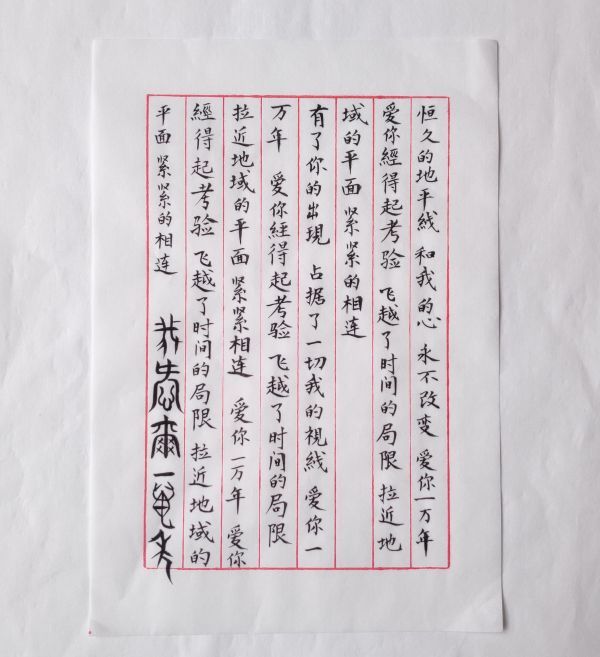 恒久的地平綫 和我的心 永不改变 爱你一万年
爱你經得起考验 飞越了时间的局限 拉近地
域的平面 紧紧的相连
有了你的出現 占据了一切我的視綫 爱你一
万年 爱你經得起考验 飞越了时间的局限
拉近地域的平面 紧紧相连 爱你一万年 爱你
經得起考验 飞越了时间的局限 拉近地域的
平面 紧紧的相连 我㤅爾一萬年